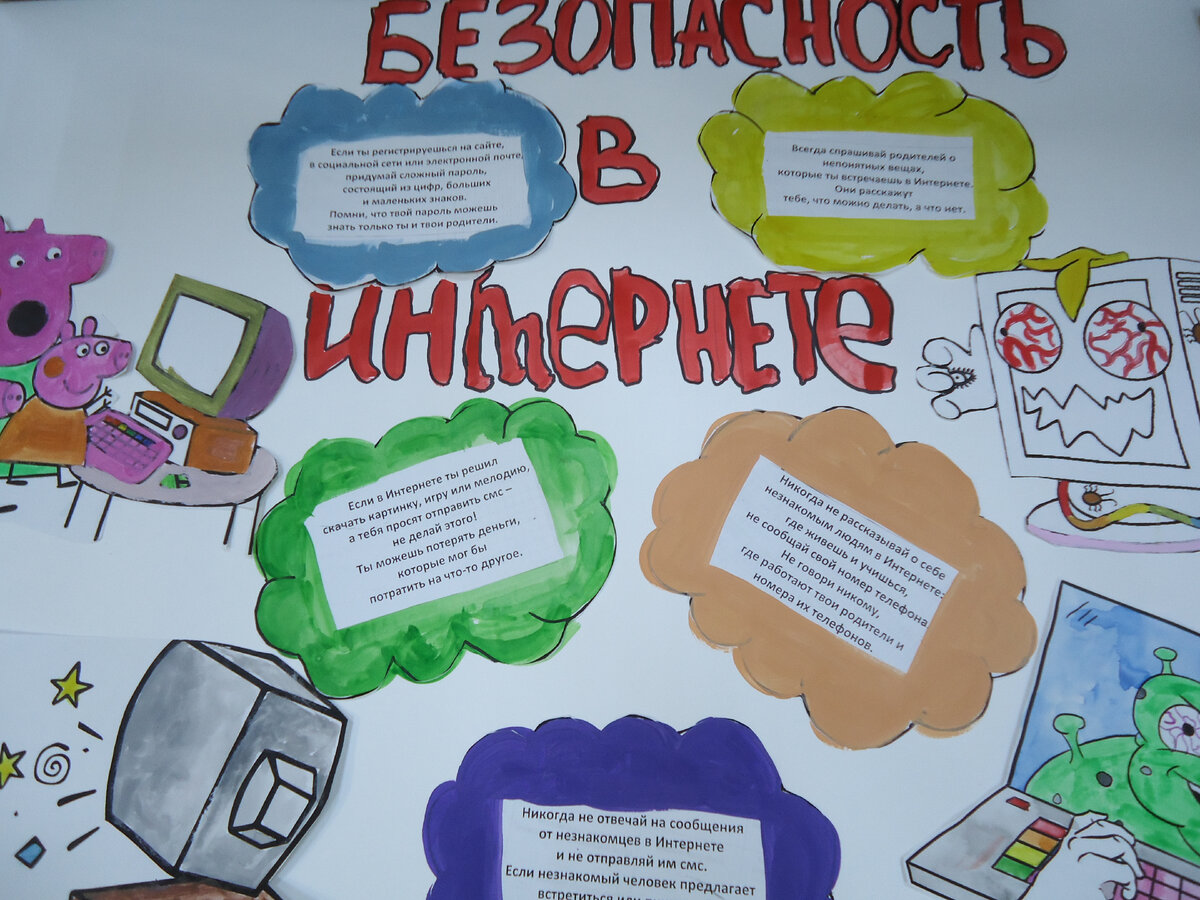 БЕЗОПАСНОСТЬ
В
ИНТЕРНЕТЕ
Если ты регистрируешься на сайте,
в социальной сети или электронной почте,
придумай сложный пароль,
состоящий из цифр, больших
и маленьких знаков.
Помни, что твой пароль можешь
знать только ты и твои родители.
Всегда спрашивай родителей о
непонятных вещах,
которые ты встречаешь в Интернете.
Они расскажут
тебе, что можно делать, а что нет.
Если в Интернете ты решил
скачать картинку, игру или мелодию,
а тебя просят отправить смс –
не делай этого!
Ты можешь потерять деньги,
которые мог бы
потратить на что-то другое.
Никогда не рассказывай о себе
незнакомым людям в Интернете:
где живешь и учишься,
не сообщай свой номер телефона
Не говори никому,
где работают твои родители и
номера их телефонов.
Никогда не отвечай на сообщения
от незнакомцев в Интернете
и не отправляй им смс.
Если незнакомый человек предлагает
встретиться или